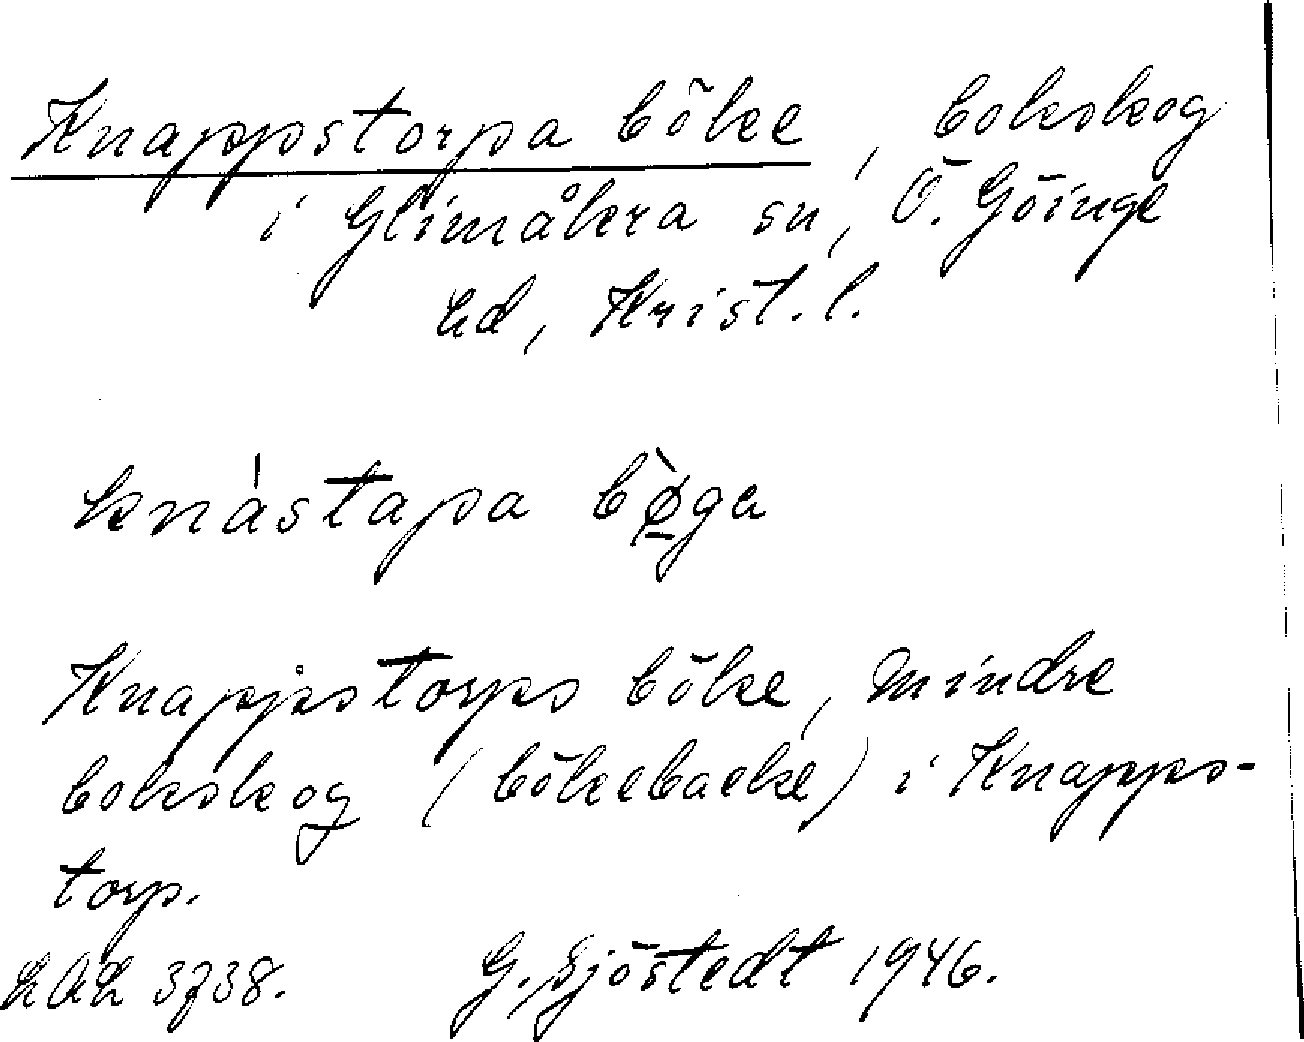 Knappstorpa böke, bokskog
i Glimåkra sn, Ö. Göinge
hd, Krist. l.
knástapa bø̀ga
Knappstorps böke, mindre
bokskog (bökebacke) i Knapps-
torp.
LAL 3738. G. Sjöstedt 1946.